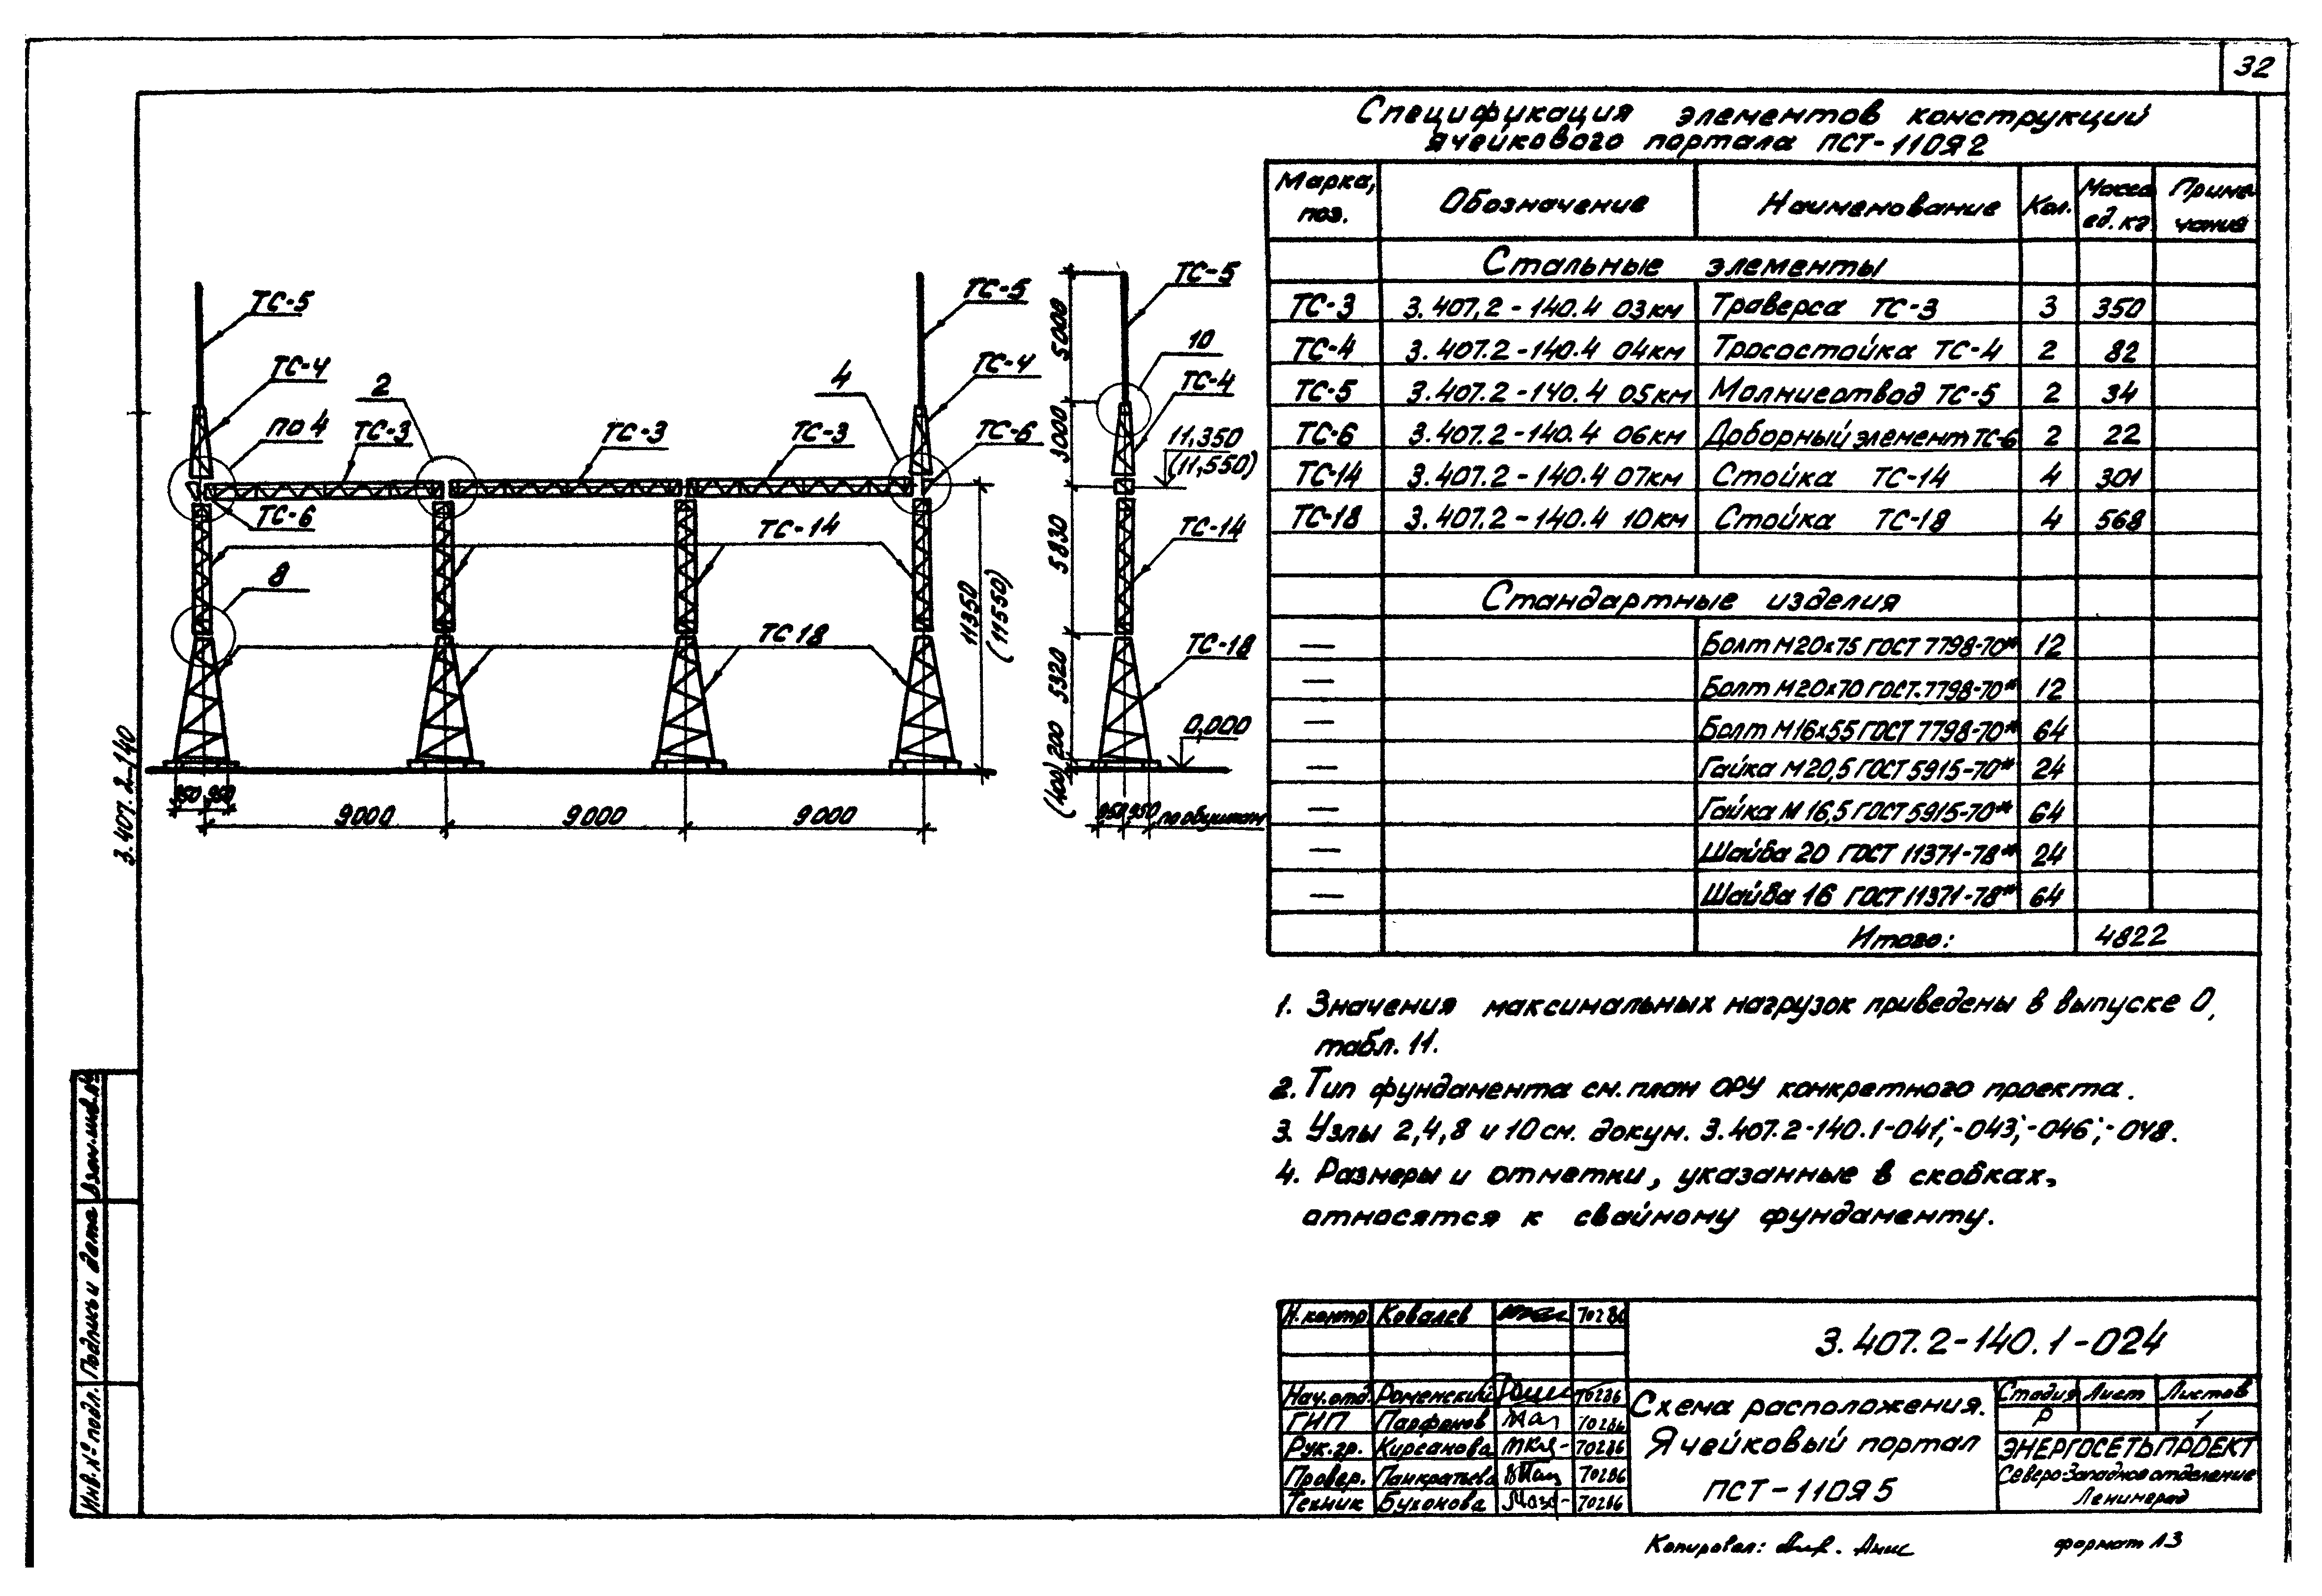 32
Спецификация элементов конструкций
ячейкового портала ПСТ-110Я2
Марка, поз. Обозначение Наименование Кол. Масса ед. кг Примечание
Стальные элементы
ТС-3 3.407.2-140.4 03км Траверса ТС-3 3 350
ТС-4 3.407.2-140.4 04км Тросостойка ТС-4 2 82
ТС-5 3.407.2-140.4 05км Молниеотвод ТС-5 2 34
ТС-6 3.407.2-140.4 06км Доборный элемент ТС-6 2 22
ТС-14 3.407.2-140.4 07км Стойка ТС-14 4 301
ТС-18 3.407.2-140.4 10км Стойка ТС-18 4 568
Стандартные изделия
— Болт М20х75 ГОСТ 7798-70* 12
— Болт М20х70 ГОСТ.7798-70* 12
— Болт М16х55 ГОСТ 7798-70* 64
— Гайка М20,5 ГОСТ 5915-70* 24
— Гайка М 16,5 ГОСТ 5915-70* 64
— Шайба 20 ГОСТ 11371-78* 24
— Шайба 16 ГОСТ 11371-78* 64
Итого: 4822
ТС-5
ТС-4
по 4
ТС-3
2
ТС-6
8
ТС-3
ТС-3
4
ТС-5
ТС-4
ТС-6
ТС-14
ТС 18
11350
(11550)
950 950
9000
9000
9000
ТС-5
10
ТС-4
11,350
(11,550)
ТС-14
ТС-18
0,000
5000
3000
5830
5320
200
(400)
950 950 по обушкам
3.407.2-140
1. Значения максимальных нагрузок приведены в выпуске 0,
табл. 11.
2. Тип фундамента см. план ОРУ конкретного проекта.
3. Узлы 2,4,8 и 10 см. докум. 3.407.2-140.1-041; -043; -046; -048.
4. Размеры и отметки, указанные в скобках,
относятся к свайному фундаменту.
Взам.инв.№
Подпись и дата
Инв.№ подл.
Н.контр. Ковалев 70286
Нач.отд. Роменский 70286
ГИП Парфенов 70286
Рук.гр. Кирсанова 70286
Провер. Панкратьева 70286
Техник Буханова 70286
3.407.2-140.1-024
Схема расположения.
Ячейковый портал
ПСТ-110Я5
Стадия Лист Листов
Р 1
ЭНЕРГОСЕТЬПРОЕКТ
Северо-Западное отделение
Ленинград
Копировал:
формат А3